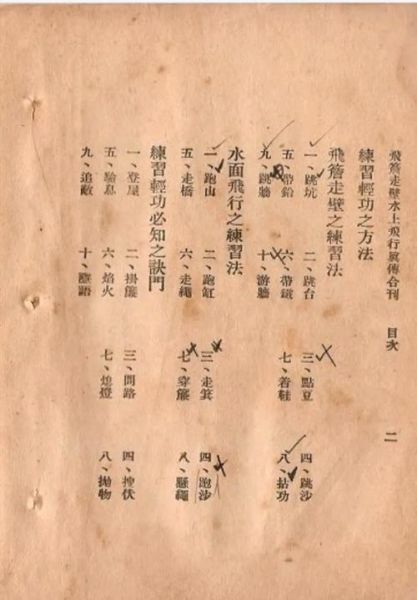 飛簷走壁水上飛行眞傳合刊 目次 二
練習輕功之方法
飛簷走壁之練習法
一、跳坑 二、跳台 三、點豆 四、跳沙
五、帶鉛 六、帶鐵 七、着鞋 八、拈功
九、跳牆 十、游牆
水面飛行之練習法
一、跑山 二、跑缸 三、走箕 四、跑沙
五、走橋 六、走繩 七、穿簾 八、懸繩
練習輕功必知之訣門
一、登屋 二、掛簾 三、問路 四、搜伏
五、輪息 六、焰火 七、熄燈 八、拋物
九、追敵 十、隱語